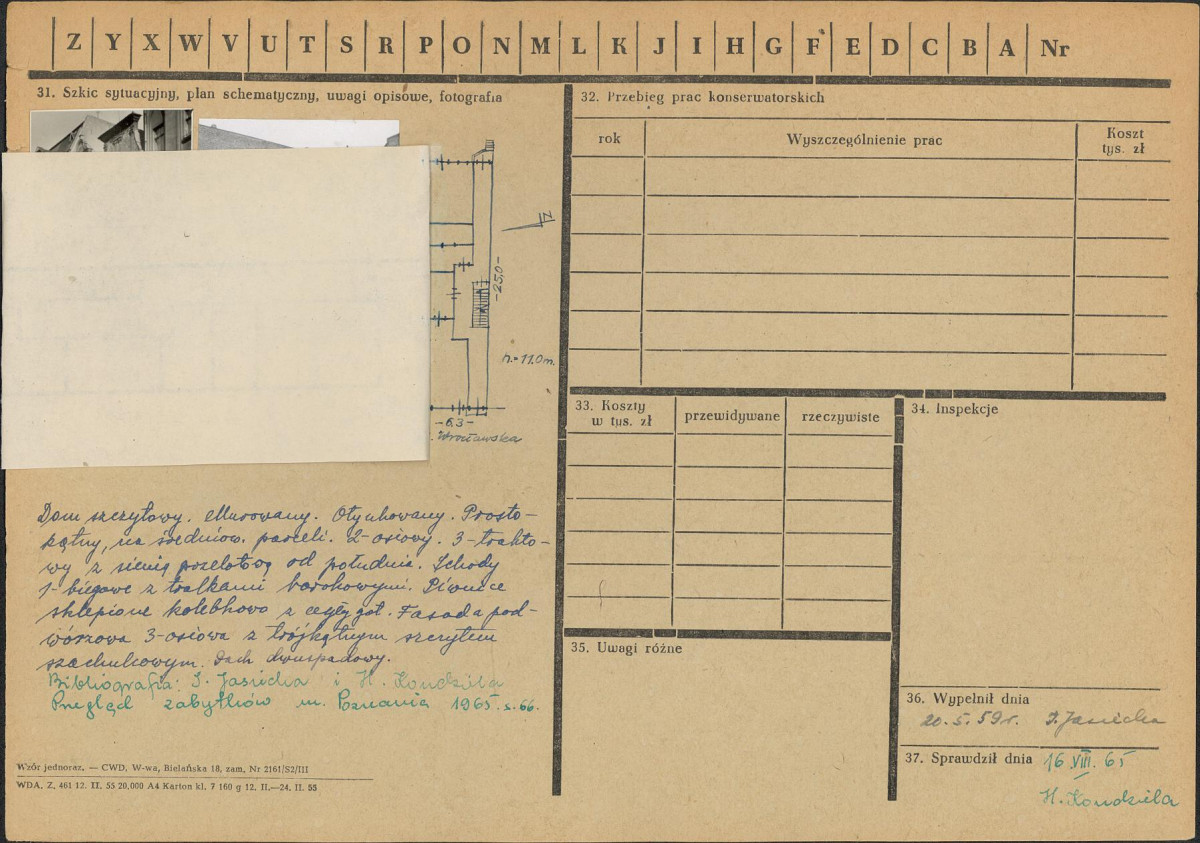 Z Y X W V U T S R P O N M L K J I H G F E D C B A Nr
31. Szkic sytuacyjny, plan schematyczny, uwagi opisowe, fotografia
N
-25,0-
h.=11.0m.
-6.3-
Wrocławska
Dom szczytowy. Murowany. Otynkowany. Prosto-
kątny, na średniow. parceli. 2-osiowy. 3-trakto-
wy z sienią przelotową od południa. Schody
1-biegowe z tralkami barokowymi. Piwnice
sklepione kolebkowo z cegły got. Fasada pod-
wórzowa 3-osiowa z trójkątnym szczytem
szachulcowym. Dach dwuspadowy.
Bibliografia: I. Jasnicka i H. Kondziela
Przegląd zabytków m. Poznania 1965. s. 66.
Wzór jednoraz. — CWD, W-wa, Bielańska 18, zam. Nr 2161/S2/III
WDA. Z. 461 12. II. 55 20,000 A4 Karton kl. 7 160 g 12. II.—24. II. 55
32. Przebieg prac konserwatorskich
rok Wyszczególnienie prac Koszt
tys. zł
33. Koszty
w tys. zł przewidywane rzeczywiste
34. Inspekcje
35. Uwagi różne
36. Wypełnił dnia
20. 5. 59 r. I. Jasnicka
37. Sprawdził dnia 16 VIII. 65
H. Kondziela